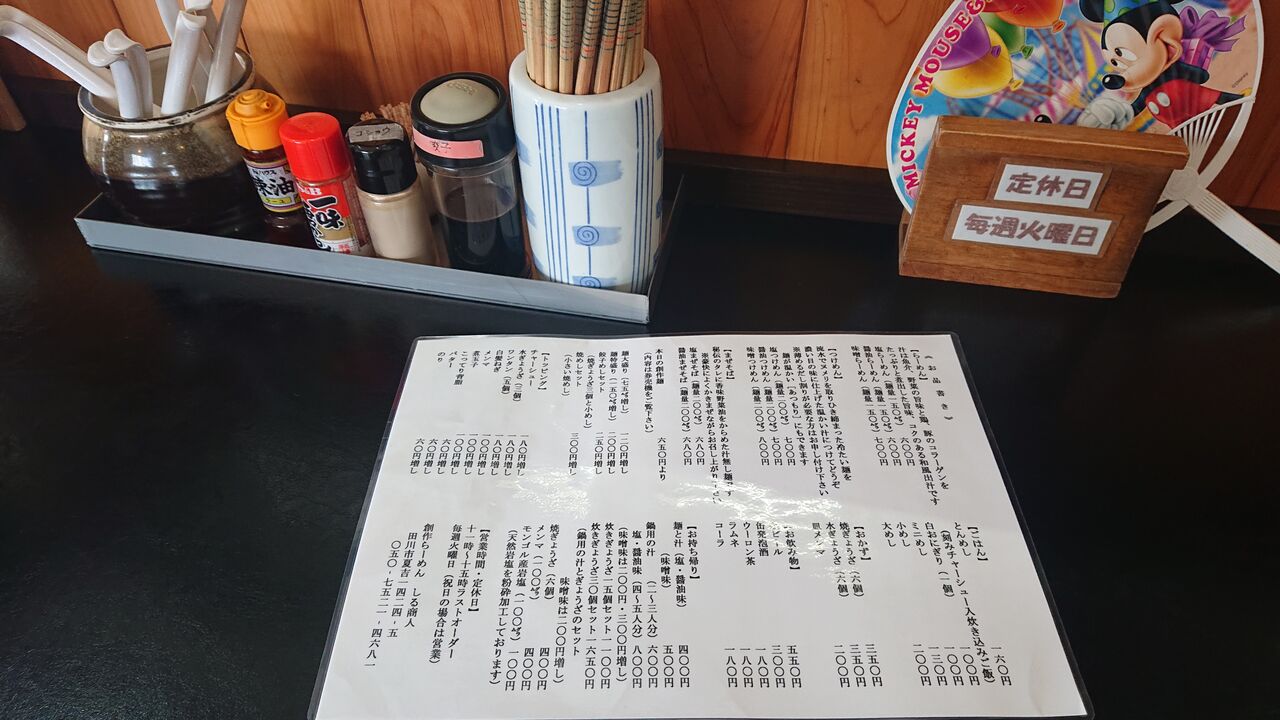 MICKEY MOUSE&
コショウ
一味
定休日
毎週火曜日
《お品書き》
【らーめん】
汁は魚介、野菜の旨味と鶏、豚のコラーゲンを
たっぷりと煮出した旨味、コクのある和風出汁です
塩らーめん（麺量一五〇㌘）六〇〇円
醤油らーめん（麺量一五〇㌘）六〇〇円
味噌らーめん（麺量一五〇㌘）七〇〇円
【つけめん】
流水でヌメリを取りひき締まった冷たい麺を
濃い目の味に仕上げた温かい汁につけてどうぞ
※薄めるだし割りが必要な方はお申し付け下さい
麺が温かい「あつもり」にもできます
塩つけめん（麺量二〇〇㌘）七〇〇円
醤油つけめん（麺量二〇〇㌘）七〇〇円
味噌つけめん（麺量二〇〇㌘）八〇〇円
【まぜそば】
秘伝のタレに香味野菜油をからめた汁無し麺です
※豪快によくかきまぜながらお召し上がり下さい
塩まぜそば（麺量二〇〇㌘）六八〇円
醤油まぜそば（麺量二〇〇㌘）六八〇円
本日の創作麺 六五〇円より
（内容は券売機をご覧下さい）
麺大盛り（七五㌘増し）一二〇円増し
麺特盛り（一五〇㌘増し）二〇〇円増し
餃子めしセット 二五〇円増し
（焼ぎょうざ三個と小めし）
焼めしセット 三〇〇円増し
（小さい焼めし）
【トッピング】
チャーシュー 一八〇円増し
水ぎょうざ（三個）一八〇円増し
ワンタン（五個）一八〇円増し
白髪ねぎ 一〇〇円増し
メンマ 一〇〇円増し
煮玉子 一〇〇円増し
こってり背脂 六〇円増し
バター 六〇円増し
のり 六〇円増し
【ごはん】
とんめし 一六〇円
（刻みチャーシュー入炊き込みご飯）
白おにぎり（一個）一〇〇円
ミニめし 一〇〇円
小めし 一三〇円
大めし 二〇〇円
【おかず】
焼ぎょうざ（六個）三五〇円
水ぎょうざ（六個）三五〇円
皿メンマ 二〇〇円
【お飲み物】
生ビール 五五〇円
缶発泡酒 三〇〇円
ウーロン茶 一八〇円
ラムネ 一八〇円
コーラ 一八〇円
【お持ち帰り】
麺と汁（塩・醤油味）四〇〇円
（味噌味）五〇〇円
鍋用の汁（二～三人分）六〇〇円
塩・醤油味（四～五人分）八〇〇円
（味噌味は二〇〇円・三〇〇円増し）
炊きぎょうざ一五個セット一一〇〇円
炊きぎょうざ三〇個セット一六五〇円
（鍋用の汁とぎょうざのセット
味噌味は二〇〇円増し）
焼ぎょうざ（六個）四〇〇円
メンマ（一〇〇㌘）四〇〇円
モンゴル産岩塩（一〇〇㌘）一〇〇円
（天然岩塩を粉砕加工しております）
【営業時間・定休日】
十一時～十五時ラストオーダー
毎週火曜日（祝日の場合は営業）
創作らーめん しる商人
田川市夏吉一四二四-五
〇五〇-七五二一-四六八一